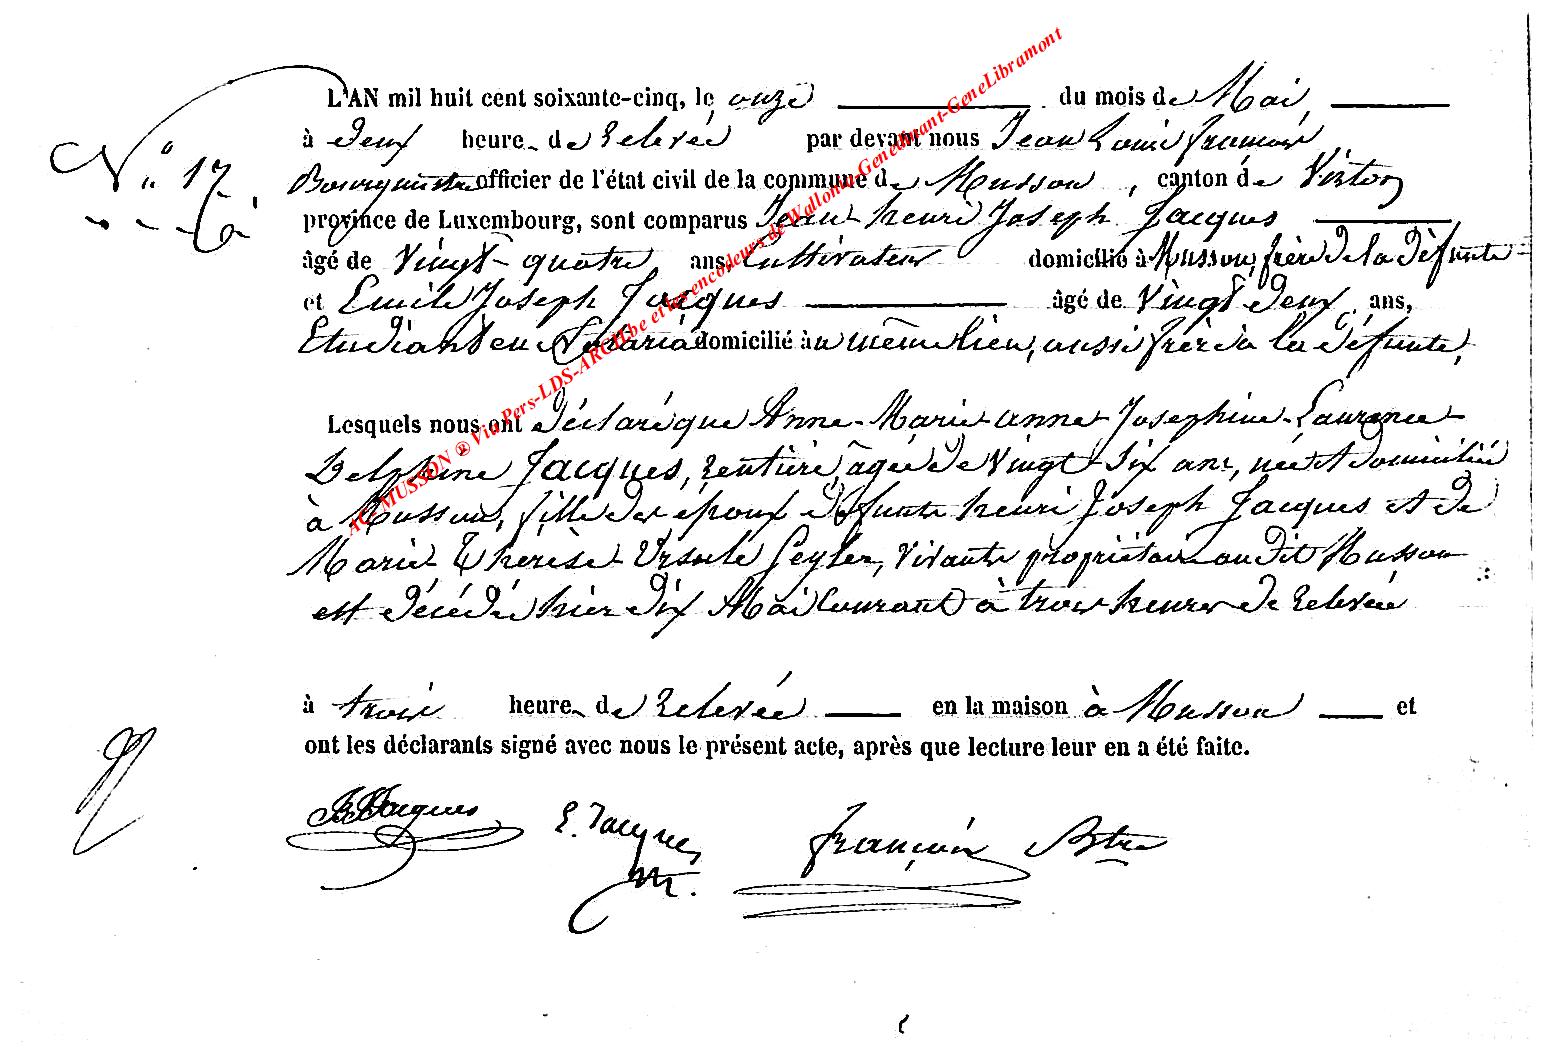 L'AN mil huit cent soixante-cinq, le onze du mois de Mai,
à deux heure de relevée par devant nous Jean Louis françois,
N° 17 Bourgmestre officier de l'état civil de la commune de Musson, canton de Virton
province de Luxembourg, sont comparus Jean henri Joseph Jacques
âgé de Vingt-quatre ans, Cultivateur domicilié à Musson, frère de la défunte
et Emile Joseph Jacques âgé de Vingt deux ans,
Etudiant en Notariat domicilié à u même lieu, aussi frère à la défunte,
Lesquels nous ont déclaré que Anne-Marie anne Josephine Laurence
Delphine Jacques, rentière, âgée de Vingt-six ans, née et domiciliée
à Musson, fille des époux défunts henri Joseph Jacques et de
Marie Thérèse Ursule Geyler, Vivante propriétaire au dit Musson
est décédée hier dix Mai Courant à trois heures de relevée
à trois heure de relevée en la maison à Musson et
ont les déclarants signé avec nous le présent acte, après que lecture leur en a été faite.
Jacques E. Jacques françois Bstre
AC MUSSON ® Via Pers-LDS-ARCH.be et les encodeurs de Wallonia-Genedinant-GeneLibramont